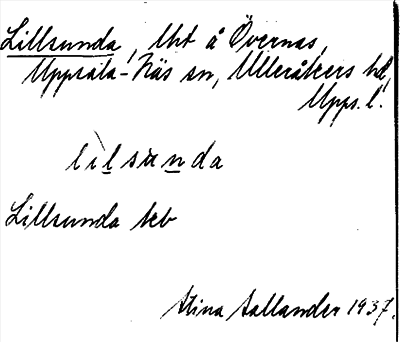 Lillsunda, lht å Övernäs,
Uppsala-Näs sn, Ulleråkers hd,
Upps. l.
lìlsùnda
Lillsunda teb
Stina Sallander 1937.